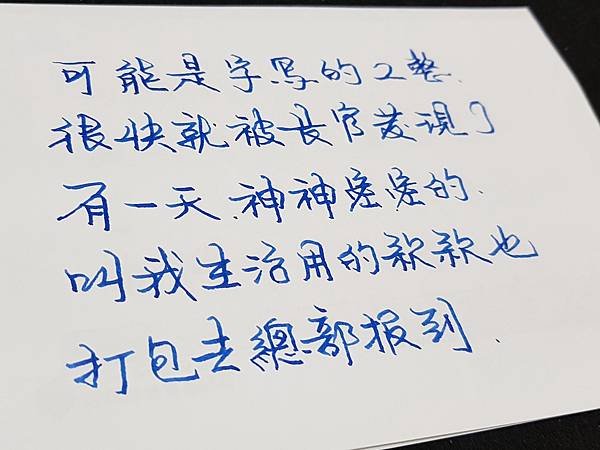 可能是字写的工整.
很快就被长官发現了
有一天.神神密密的.
叫我生活用的款款也
打包去總部报到.